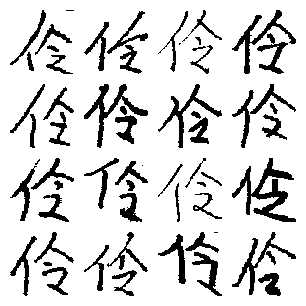 伶伶伶伶
伶伶伶伶
伶伶伶伶
伶伶伶伶